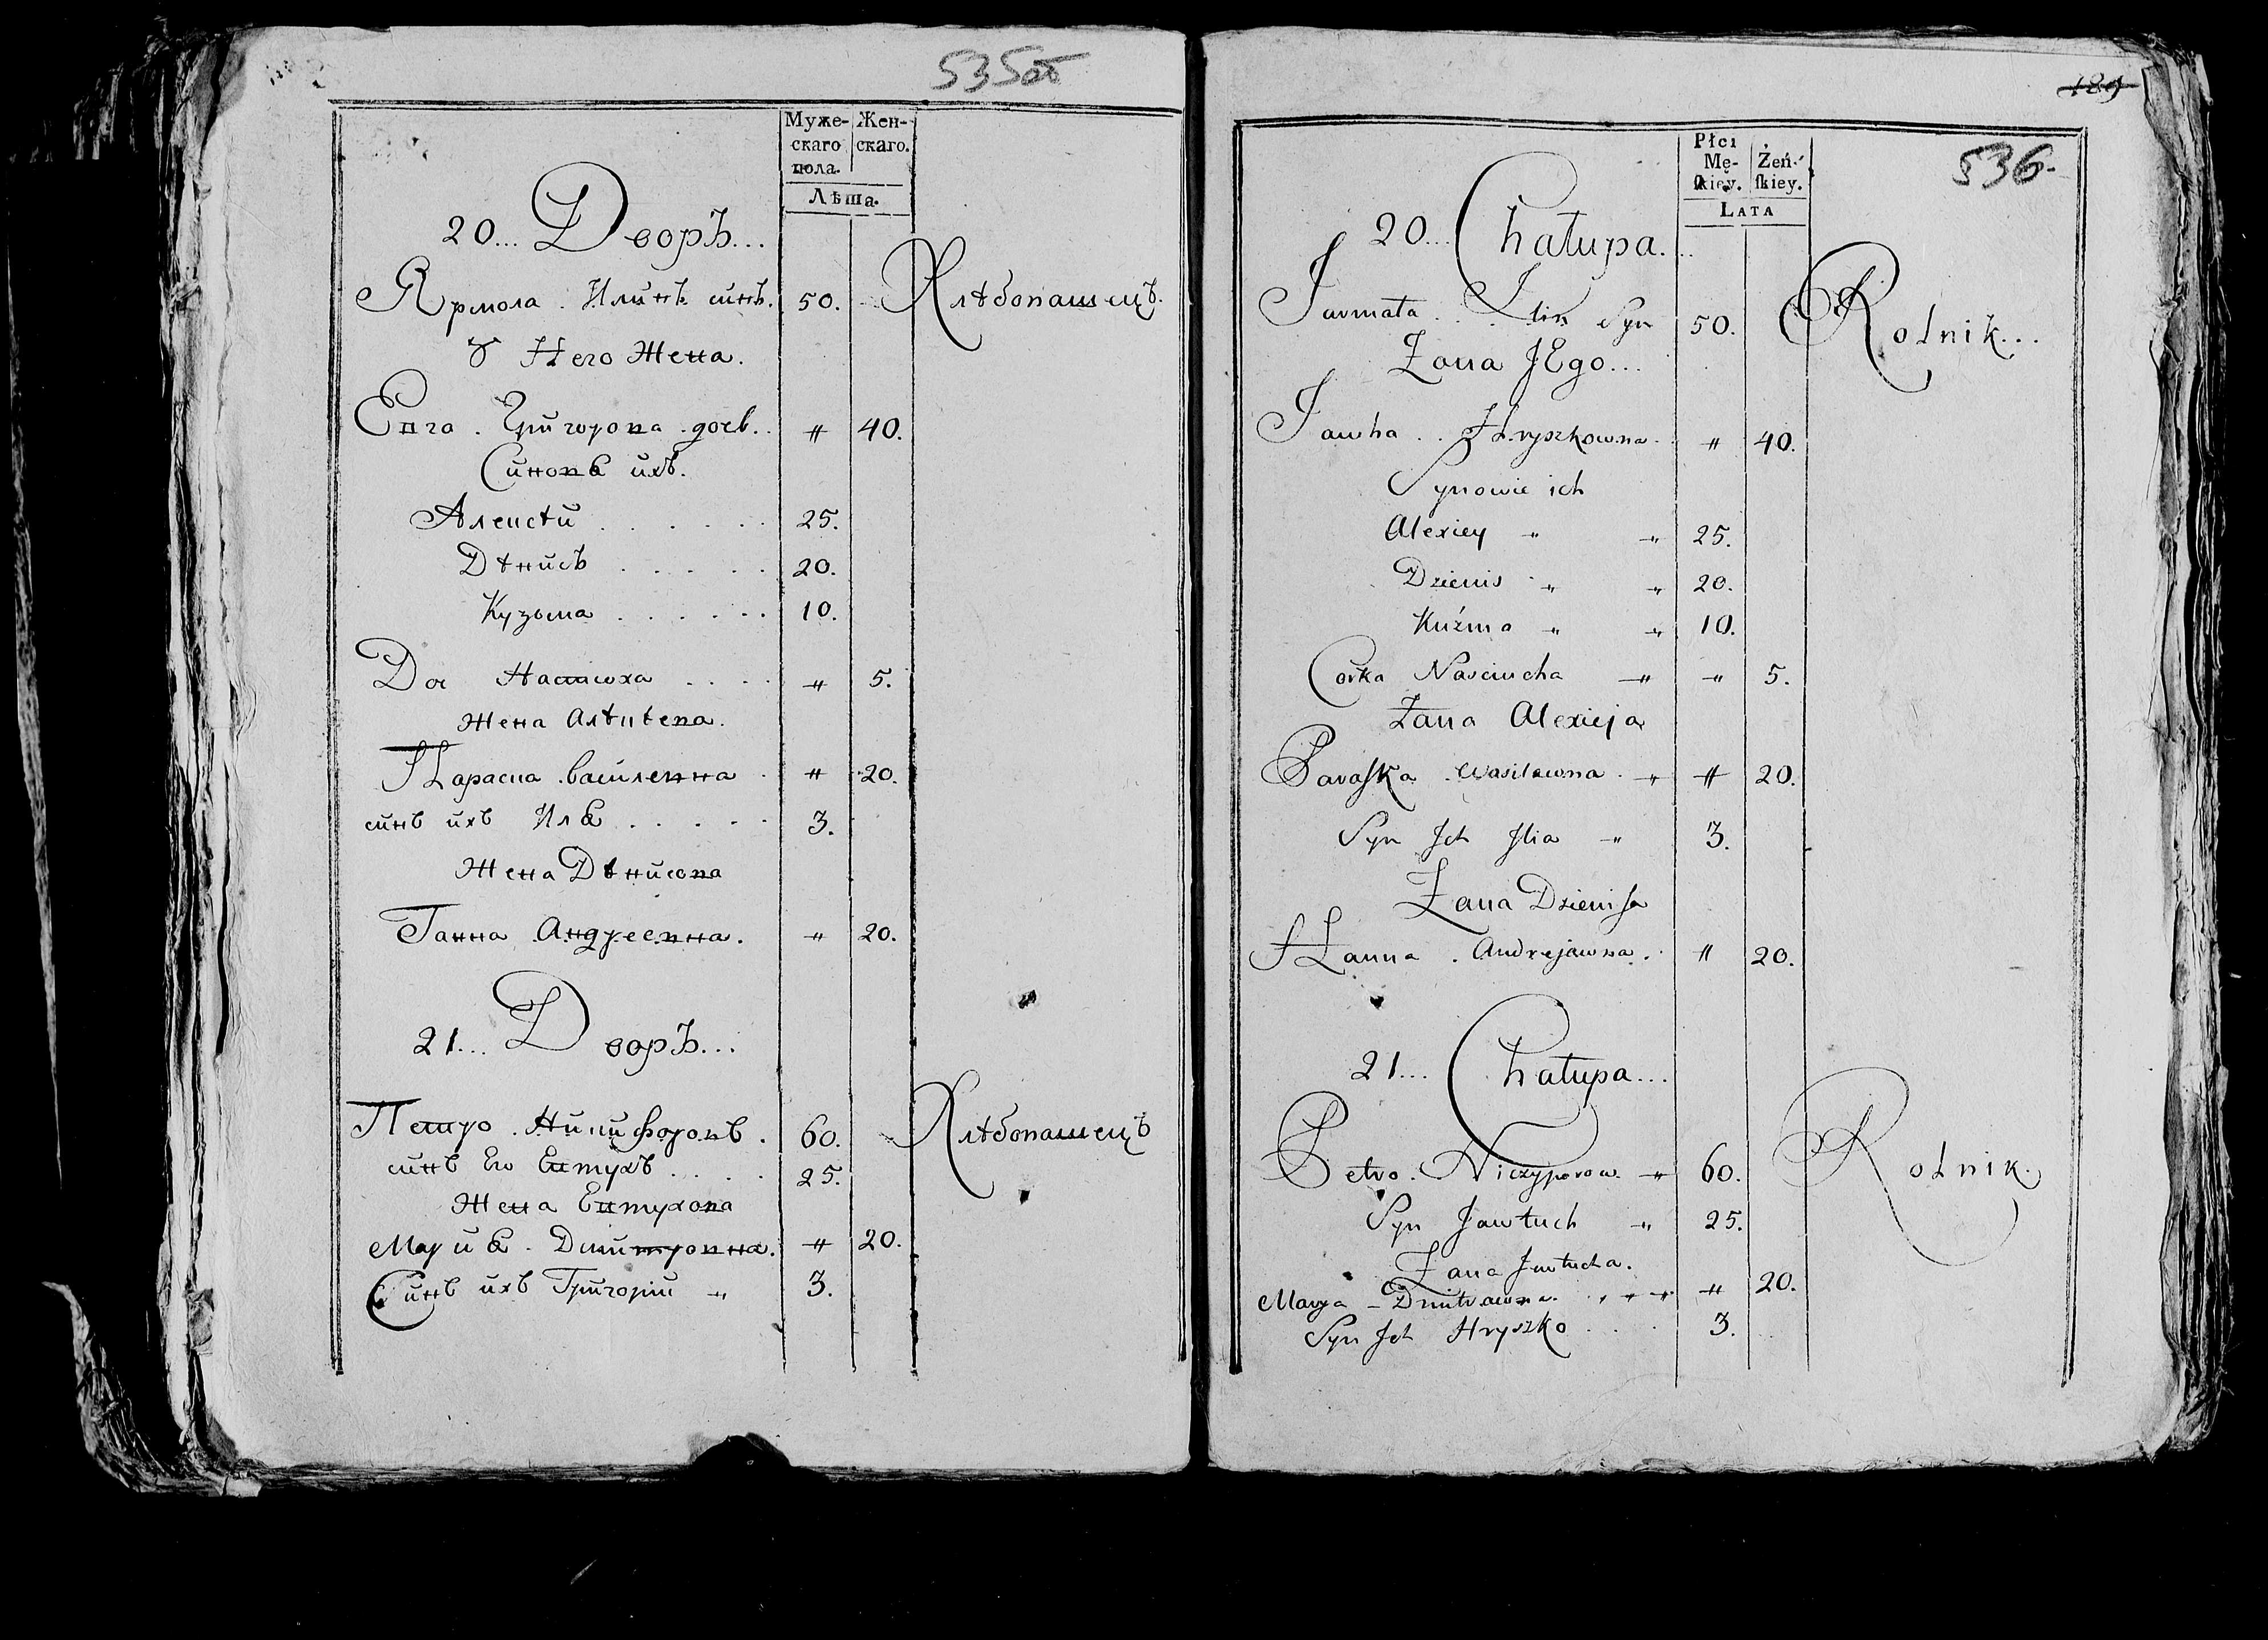 535об
Муже-
скаго
пола.
Жен-
скаго.
Лѣта.
20... Дворъ...
Ярмола . Илинъ синъ. 50. Хлѣбопашецъ.
У Него Жена.
Евга . Григорова . доч. " 40.
Синовѣ ихъ.
Алексѣй . . . . . . 25.
Дѣнисъ . . . . . 20.
Кузьма . . . . . . 10.
Доч Настюха . . . . " 5.
Жена Алѣксѣева.
Параска . василевна . " 20.
синъ ихъ Илѣ . . . . . 3.
Жена Дѣнисова
Ганна Андреевна. " 20.
21... Дворъ...
Петро . Ничифоровъ . 60. Хлѣбопашецъ
синъ Его Евтухъ . . . . 25.
Жена Евтухова
Мариѣ . Димитровна. " 20.
Синъ ихъ Григорий " 3.
189
536.
Płci
Mę-
ſkiey.
Żeń-
ſkiey.
LATA
20... Chałupa...
Jarmała . . . Ilin Syn 50. Rolnik...
Zona JEgo...
Jawha . . Hryszkowna . " 40.
Synowie ich
Alexiey " " 25.
Dzienis " " 20.
Kuźma " " 10.
Corka Nasciucha " " 5.
Zana Alexieja
Paraſka . Wasilewna . " " 20.
Syn Jch Jlia " 3.
Zana Dzieniſa
Hanna . Andrejawna . . " 20.
21... Chałupa...
Petro . Niczyporow . " 60. Rolnik.
Syn Jawtuch " 25.
Zana Jawtucha.
Marya – Dmitrawna . " " " " 20.
Syn Jch Hryszko . . . 3.